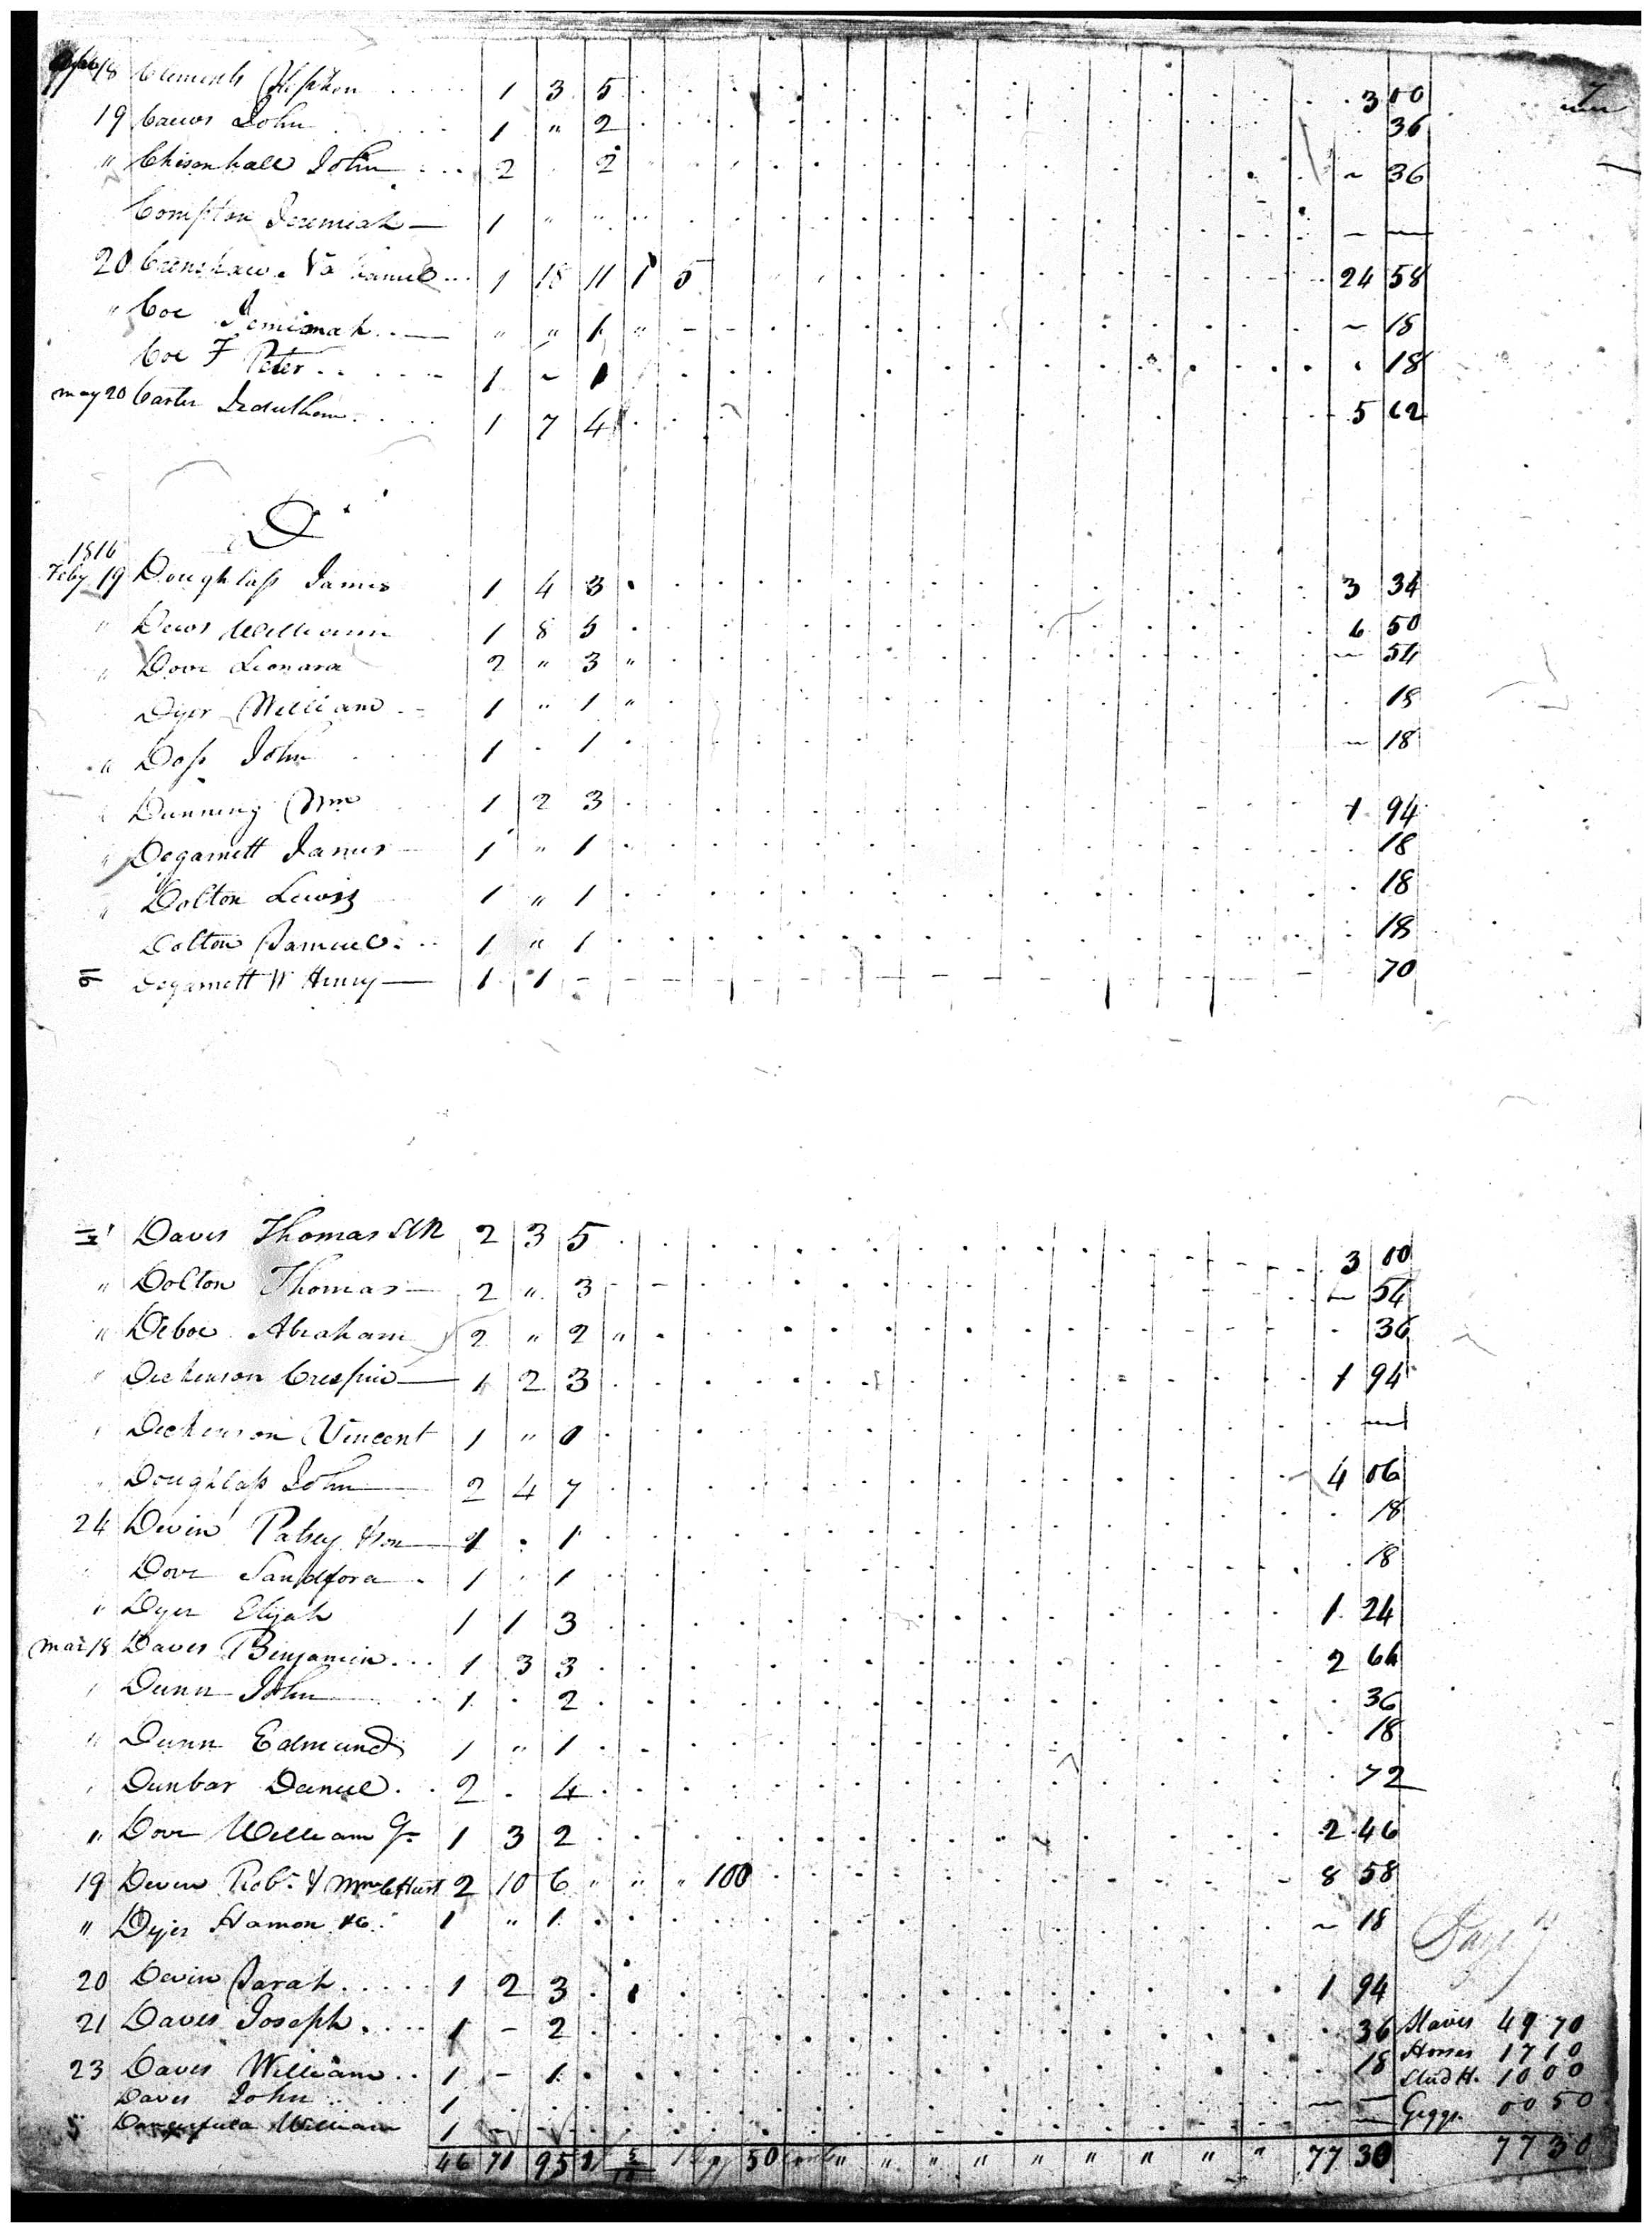 18 Clements Stephen 1 3 5 3 00
19 John 1 " 2 36
" Chisenhall John 2 2 ~ 36
Compton Jeremiah 1 " " — —
20 1 18 11 1 5 24 58
" Coe Jemimah " " 1 " ~ 18
Coe F Peter 1 ~ 1 18
may 20 Carter 1 7 4 5 62
D
1816
Feby 19 Doughlass James 1 4 3 3 34
" Dews William 1 8 5 6 50
" Dove Leonard 2 " 3 " ~ 54
Dyer William 1 " 1 " 18
" Doss John 1 1 ~ 18
Dunning Wm 1 2 3 1 94
" Degarnett James 1 " 1 18
" Dolton Lewis 1 " 1 18
Dolton Samuel 1 " 1 18
Degarnett W Henry 1 1 70
Daves Thomas SR 2 3 5 3 00
" Dolton Thomas 2 " 3 ~ 54
" Deboe Abraham 2 " 2 " 36
" Dickenson Crespin 1 2 3 1 94
Dickenson Vincent 1 " 0 —
Doughlass John 2 4 7 4 06
24 Devin Patsey & son 1 1 18
Dove Sandford 1 1 18
" Dyer Elijah 1 1 3 1 24
Mar 18 Daves Benjamin 1 3 3 2 64
Dunn John 1 2 36
" Dunn Edmund 1 " 1 18
Dunbar Daniel 2 4 72
" Dove William Jr 1 3 2 2 46
19 Devin Robt & Wm 2 10 6 " " " 100 8 58
" Dyer Hamon 1 " 1 ~ 18
Page 7
20 Devin Sarah 1 2 3 1 94
21 Daves Joseph 1 - 2 36 Slaves 49 70
23 Daves William 1 - 1 18 Horses 17 10
Stud H. 10 00
Daves John 1 — —
Giggs 00 50
William 1 —
46 71 95 50 " " " " " " " " " 77 30 77 30